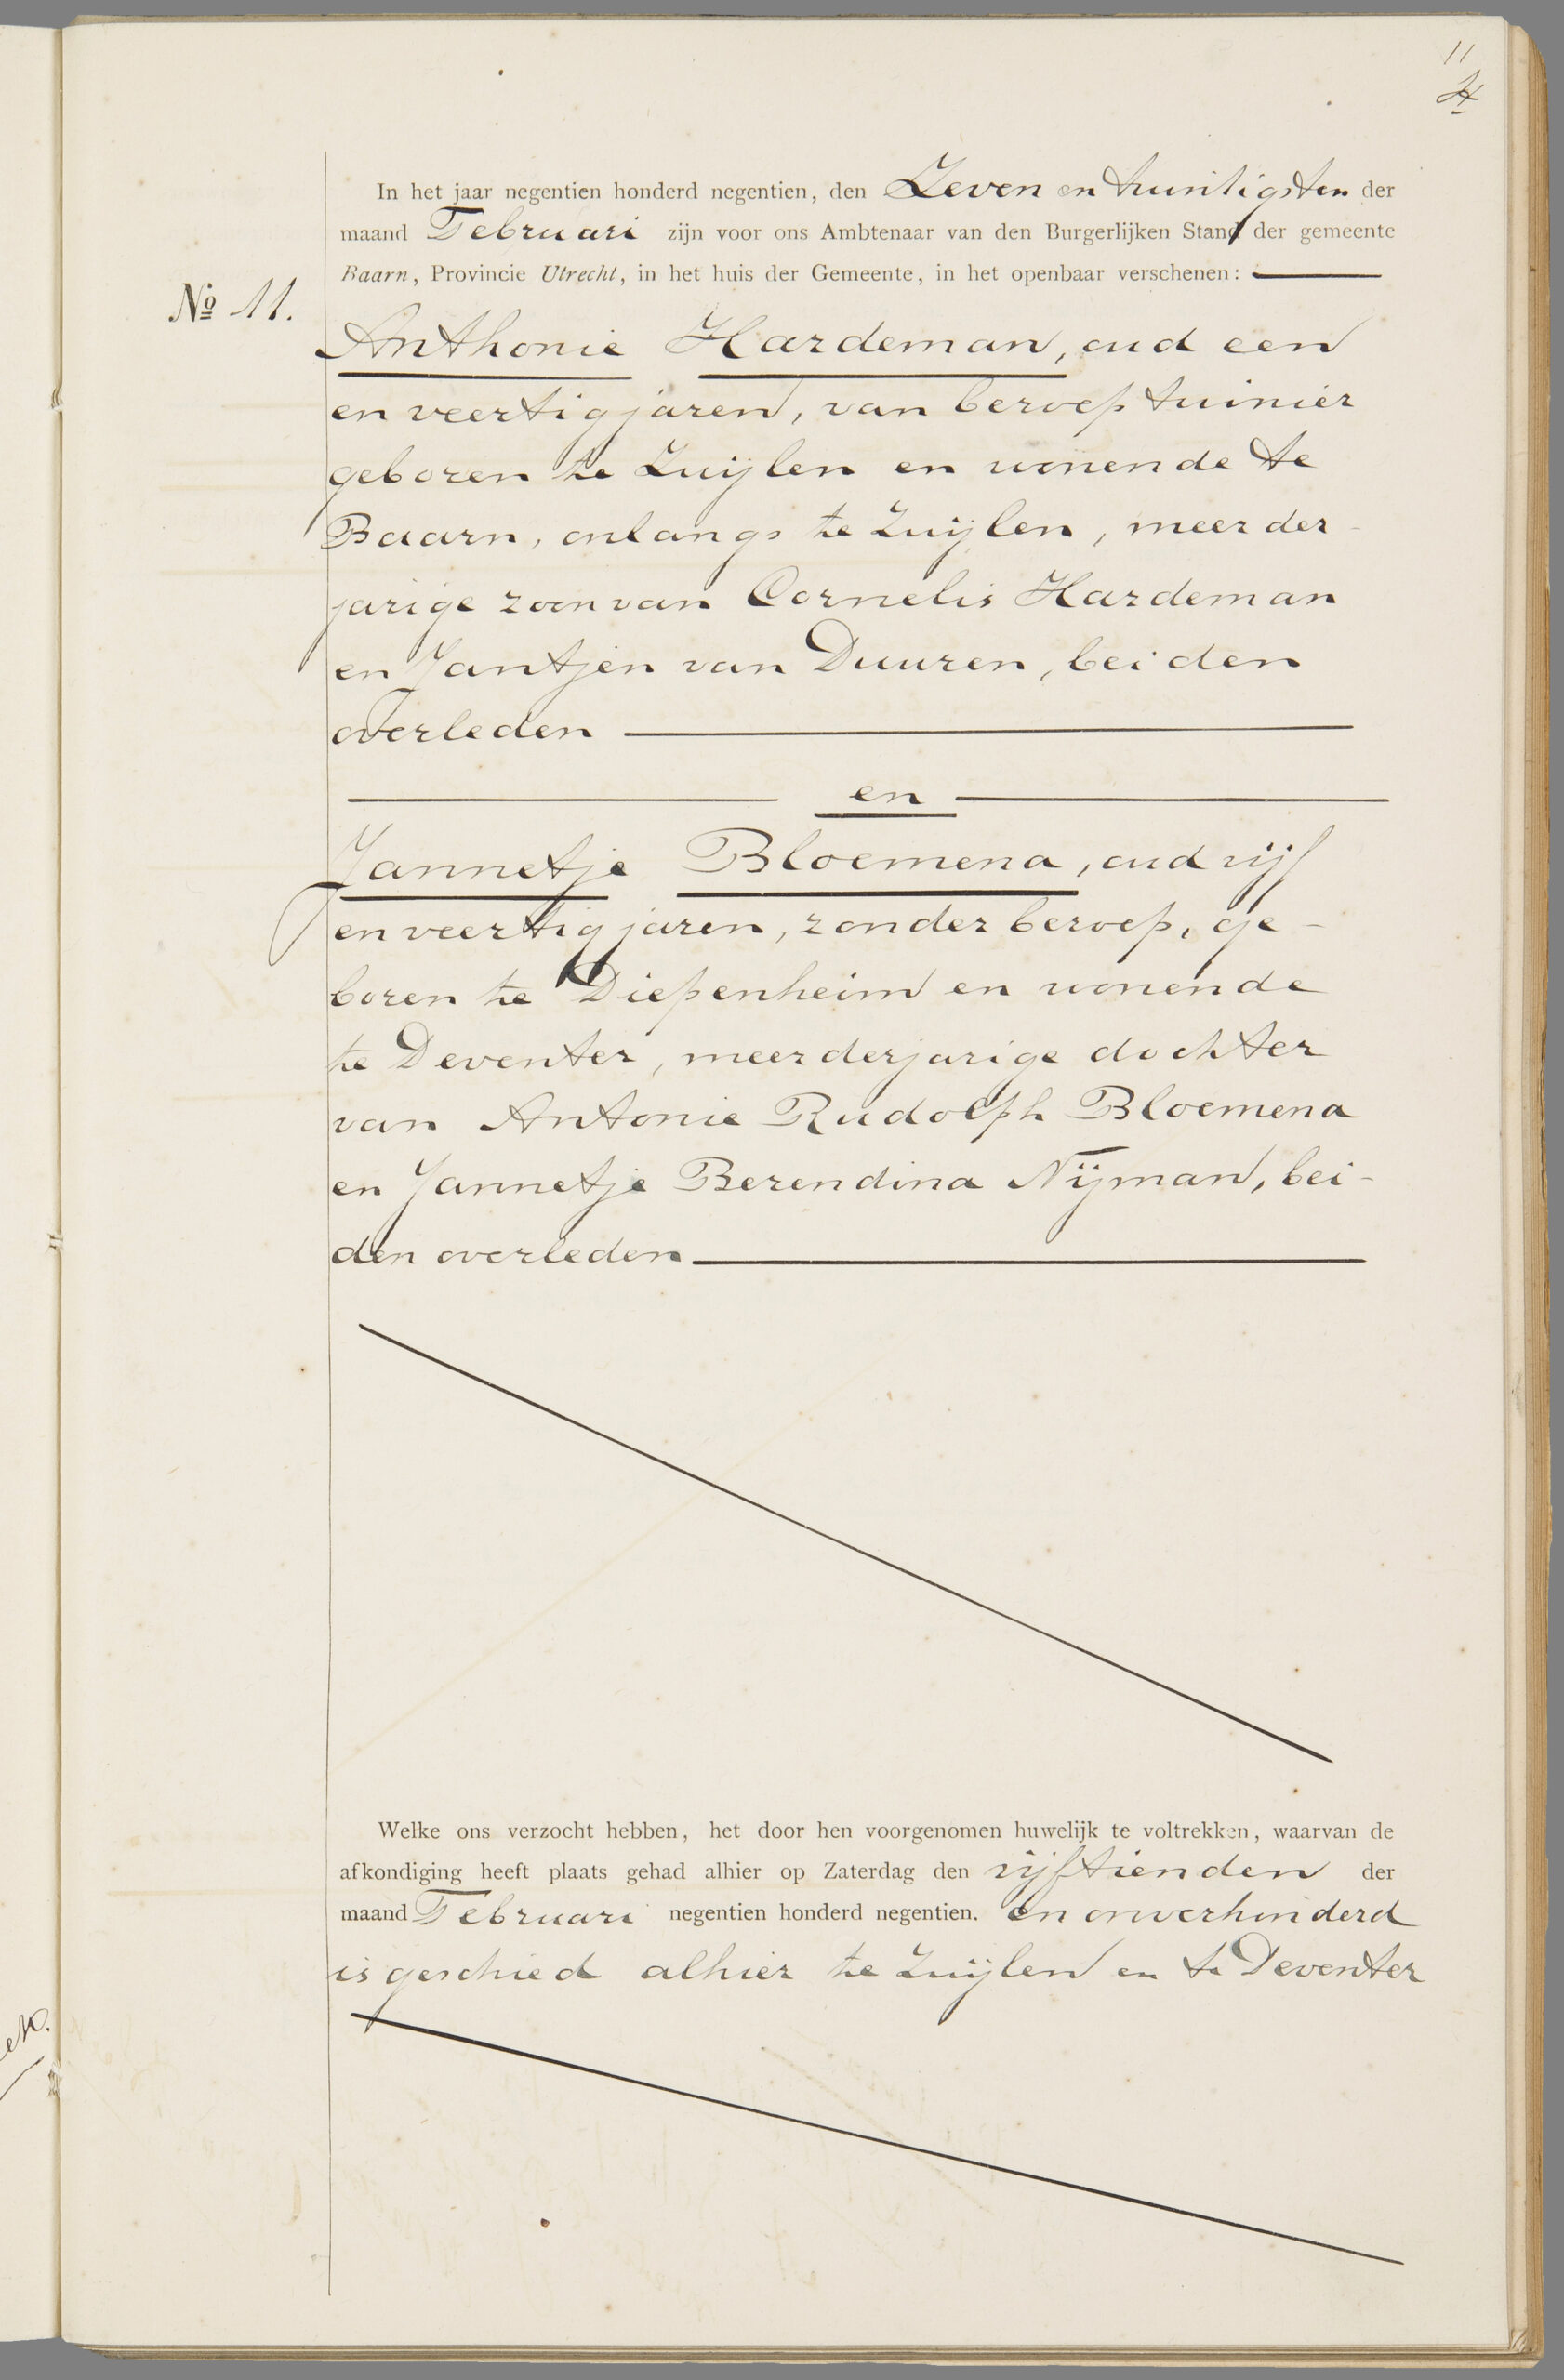 11
4
In het jaar negentien honderd negentien, den Zeven en twintigsten der
maand Februari zijn voor ons Ambtenaar van den Burgerlijken Stand der gemeente
Baarn, Provincie Utrecht, in het huis der Gemeente, in het openbaar verschenen:
No 11.
Anthonie Hardeman, oud een
en veertig jaren, van beroep tuinier
geboren te Zuijlen en wonende te
Baarn, onlangs te Zuijlen, meerder-
jarige zoon van Cornelis Hardeman
en Jantjen van Duuren, beiden
overleden
en
Jannetje Bloemena, oud vijf
en veertig jaren, zonder beroep, ge-
boren te Diepenheim en wonende
te Deventer, meerderjarige dochter
van Antonie Rudolph Bloemena
en Jannetje Berendina Nijman, bei-
den overleden
Welke ons verzocht hebben, het door hen voorgenomen huwelijk te voltrekken, waarvan de
afkondiging heeft plaats gehad alhier op Zaterdag den vijftienden der
maand Februari negentien honderd negentien. en onverhinderd
is geschied alhier te Zuijlen en te Deventer